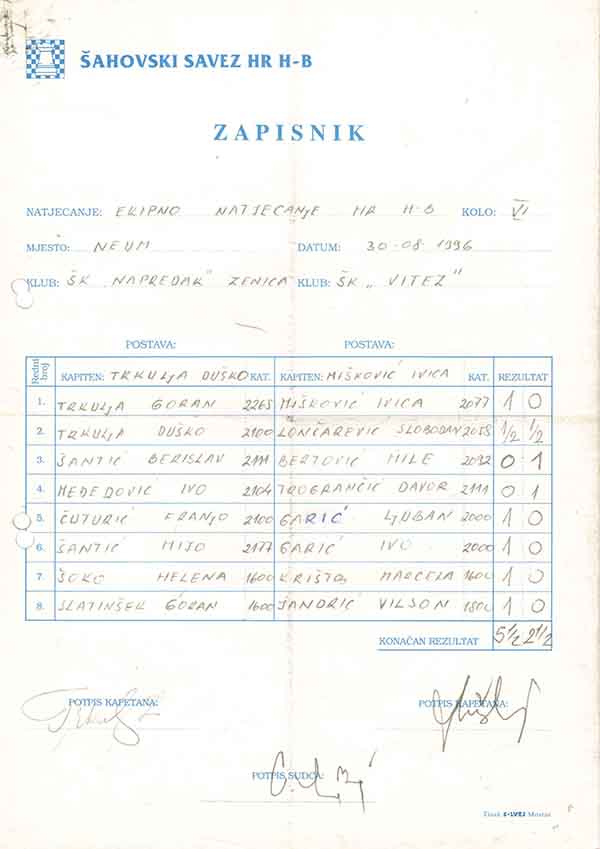 ŠAHOVSKI SAVEZ HR H-B
ZAPISNIK
NATJECANJE: EKIPNO NATJECANJE HR H-B KOLO: VI
MJESTO: NEUM DATUM: 30-08 1996
KLUB: ŠK „NAPREDAK" ZENICA KLUB: ŠK „VITEZ"
POSTAVA: POSTAVA:
Redni broj KAPITEN: TRKULJA DUŠKO KAT. KAPITEN: MIŠKOVIĆ IVICA KAT. REZULTAT
1. TRKULJA GORAN 2265 MIŠKOVIĆ IVICA 2077 1 0
2. TRKULJA DUŠKO 2100 LONČAREVIĆ SLOBODAN 2058 1/2 1/2
3. ŠANTIĆ BERISLAV 2111 BERTOVIĆ MILE 2092 0 1
4. MEDEDOVIĆ IVO 2104 TROGRANČIĆ DAVOR 2111 0 1
5. ČUTURIĆ FRANJO 2100 GARIĆ LJUBAN 2000 1 0
6. ŠANTIĆ MIJO 2177 GARIĆ IVO 2000 1 0
7. ŠOKO HELENA 1600 KRIŠTO MARCELA 1600 1 0
8. SLATINŠEK GORAN 1600 JANDRIĆ VILSON 1800 1 0
KONAČAN REZULTAT 5 1/2 2 1/2
POTPIS KAPETANA: POTPIS KAPETANA:
POTPIS SUDCA:
Tisak Mostar